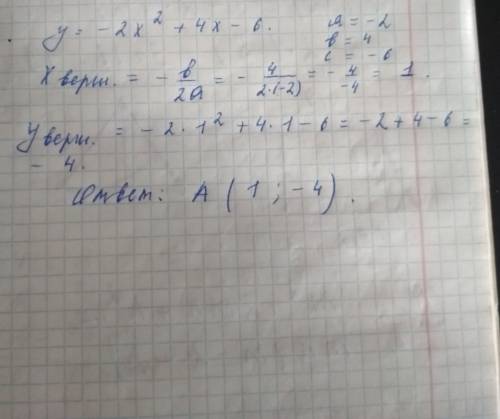 y = -2x² + 4x - 6.
a = -2
b = 4
c = -6
X верш. = - b/2a = - 4/2·(-2) = - 4/-4 = 1.
Y верш. = -2·1² + 4·1 - 6 = -2 + 4 - 6 =
- 4.
Ответ: A (1; -4).